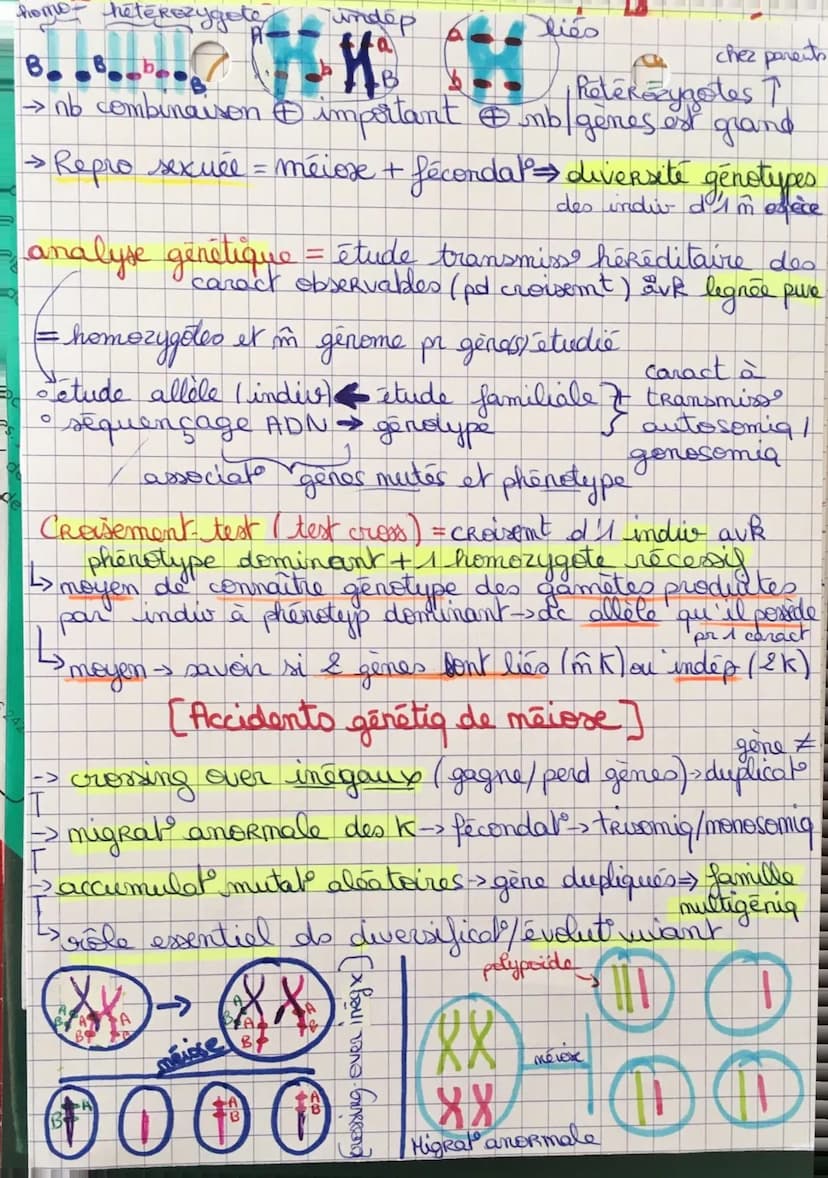 homo- hétérozygote indép liés
A a a
B B b B b B b
chez parents
hétérozygotes ↑
→ nb combinaison ⊕ important ⊕ nb gènes est grand
→ Repro sexuée = méiose + fécondat° ⇒ diversité génotypes
des indiv d'1 m̂ espèce
analyse génétique = étude transmiss° héréditaire des
caract observables (pd croisemt) avk lignée pure
= homozygotes et m̂ génome pr gène(s) étudié
◦ étude allèle (indiv) ← étude familiale } caract à
transmiss°
◦ séquençage ADN → génotype autosomiq /
gonosomiq
associat° gènes mutés et phénotype
Croisement-test (test cross) = croisemt d'1 indiv avk
phénotype dominant + 1 homozygote récessif
↳ moyen de connaître génotype des gamètes produites
par indiv à phénotyp dominant → dc allèle qu'il possède
pr 1 caract
↳ moyen → savoir si 2 gènes sont liés (m̂ K) ou indép (2K)
[Accidents génétiq de méiose]
gène ≠
→ crossing over inégaux (gagne/perd gènes) → duplicat°
→ migrat° anormale des K → fécondat° → trisomiq/monosomiq
→ accumulat° mutat° aléatoires → gène dupliqués ⇒ famille
multigéniq
↳ rôle essentiel ds diversificat°/évolut° vivant
A B A B A B
A B A B
méiose
B A A B A B
Crossing-over inég x)
polypoïde
méiose
Migrat° anormale